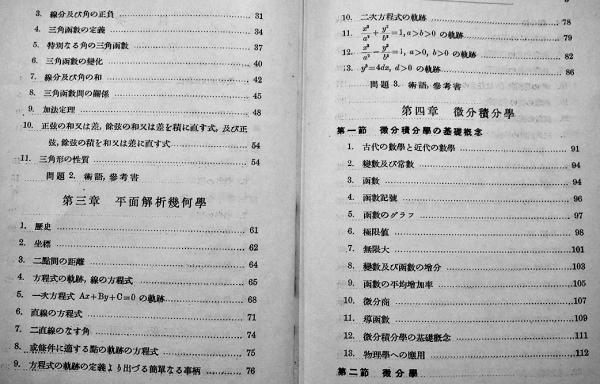 3. 線分及び角の正負 31
4. 三角函數の定義 34
5. 特別なる角の三角函數 37
6. 三角函數の變化 40
7. 線分及び角の和 42
8. 三角函數間の關係 45
9. 加法定理 48
10. 正弦の和又は差, 餘弦の和又は差を積に直す式, 及び正
弦, 餘弦の積を和又は差に直す式 54
11. 三角形の性質 54
問題 2. 術語, 參考書
第三章 平面解析幾何學
1. 歴史 61
2. 坐標 62
3. 二點間の距離 64
4. 方程式の軌跡, 線の方程式 65
5. 一次方程式 Ax+By+C=0 の軌跡 68
6. 直線の方程式 71
7. 二直線のなす角 74
8. 或條件に適する點の軌跡の方程式 75
9. 方程式の軌跡の定義より出づる簡單なる事柄 76
10. 二次方程式の軌跡 78
11. x²/a²+y²/b²=1, a>b>0 の軌跡 79
12. x²/a²−y²/b²=1, a>0, b>0 の軌跡 82
13. y²=4dx, d>0 の軌跡 86
問題 3. 術語, 參考書
第四章 微分積分學
第一節 微分積分學の基礎概念
1. 古代の數學と近代の數學 91
2. 變數及び常數 94
3. 函數 94
4. 函數記號 96
5. 函數のグラフ 97
6. 極限値 98
7. 無限大 101
8. 變數及び函數の增分 103
9. 函數の平均增加率 105
10. 微分商 107
11. 導函數 109
12. 微分積分學の基礎概念 111
13. 物理學への應用 112
第二節 微分學